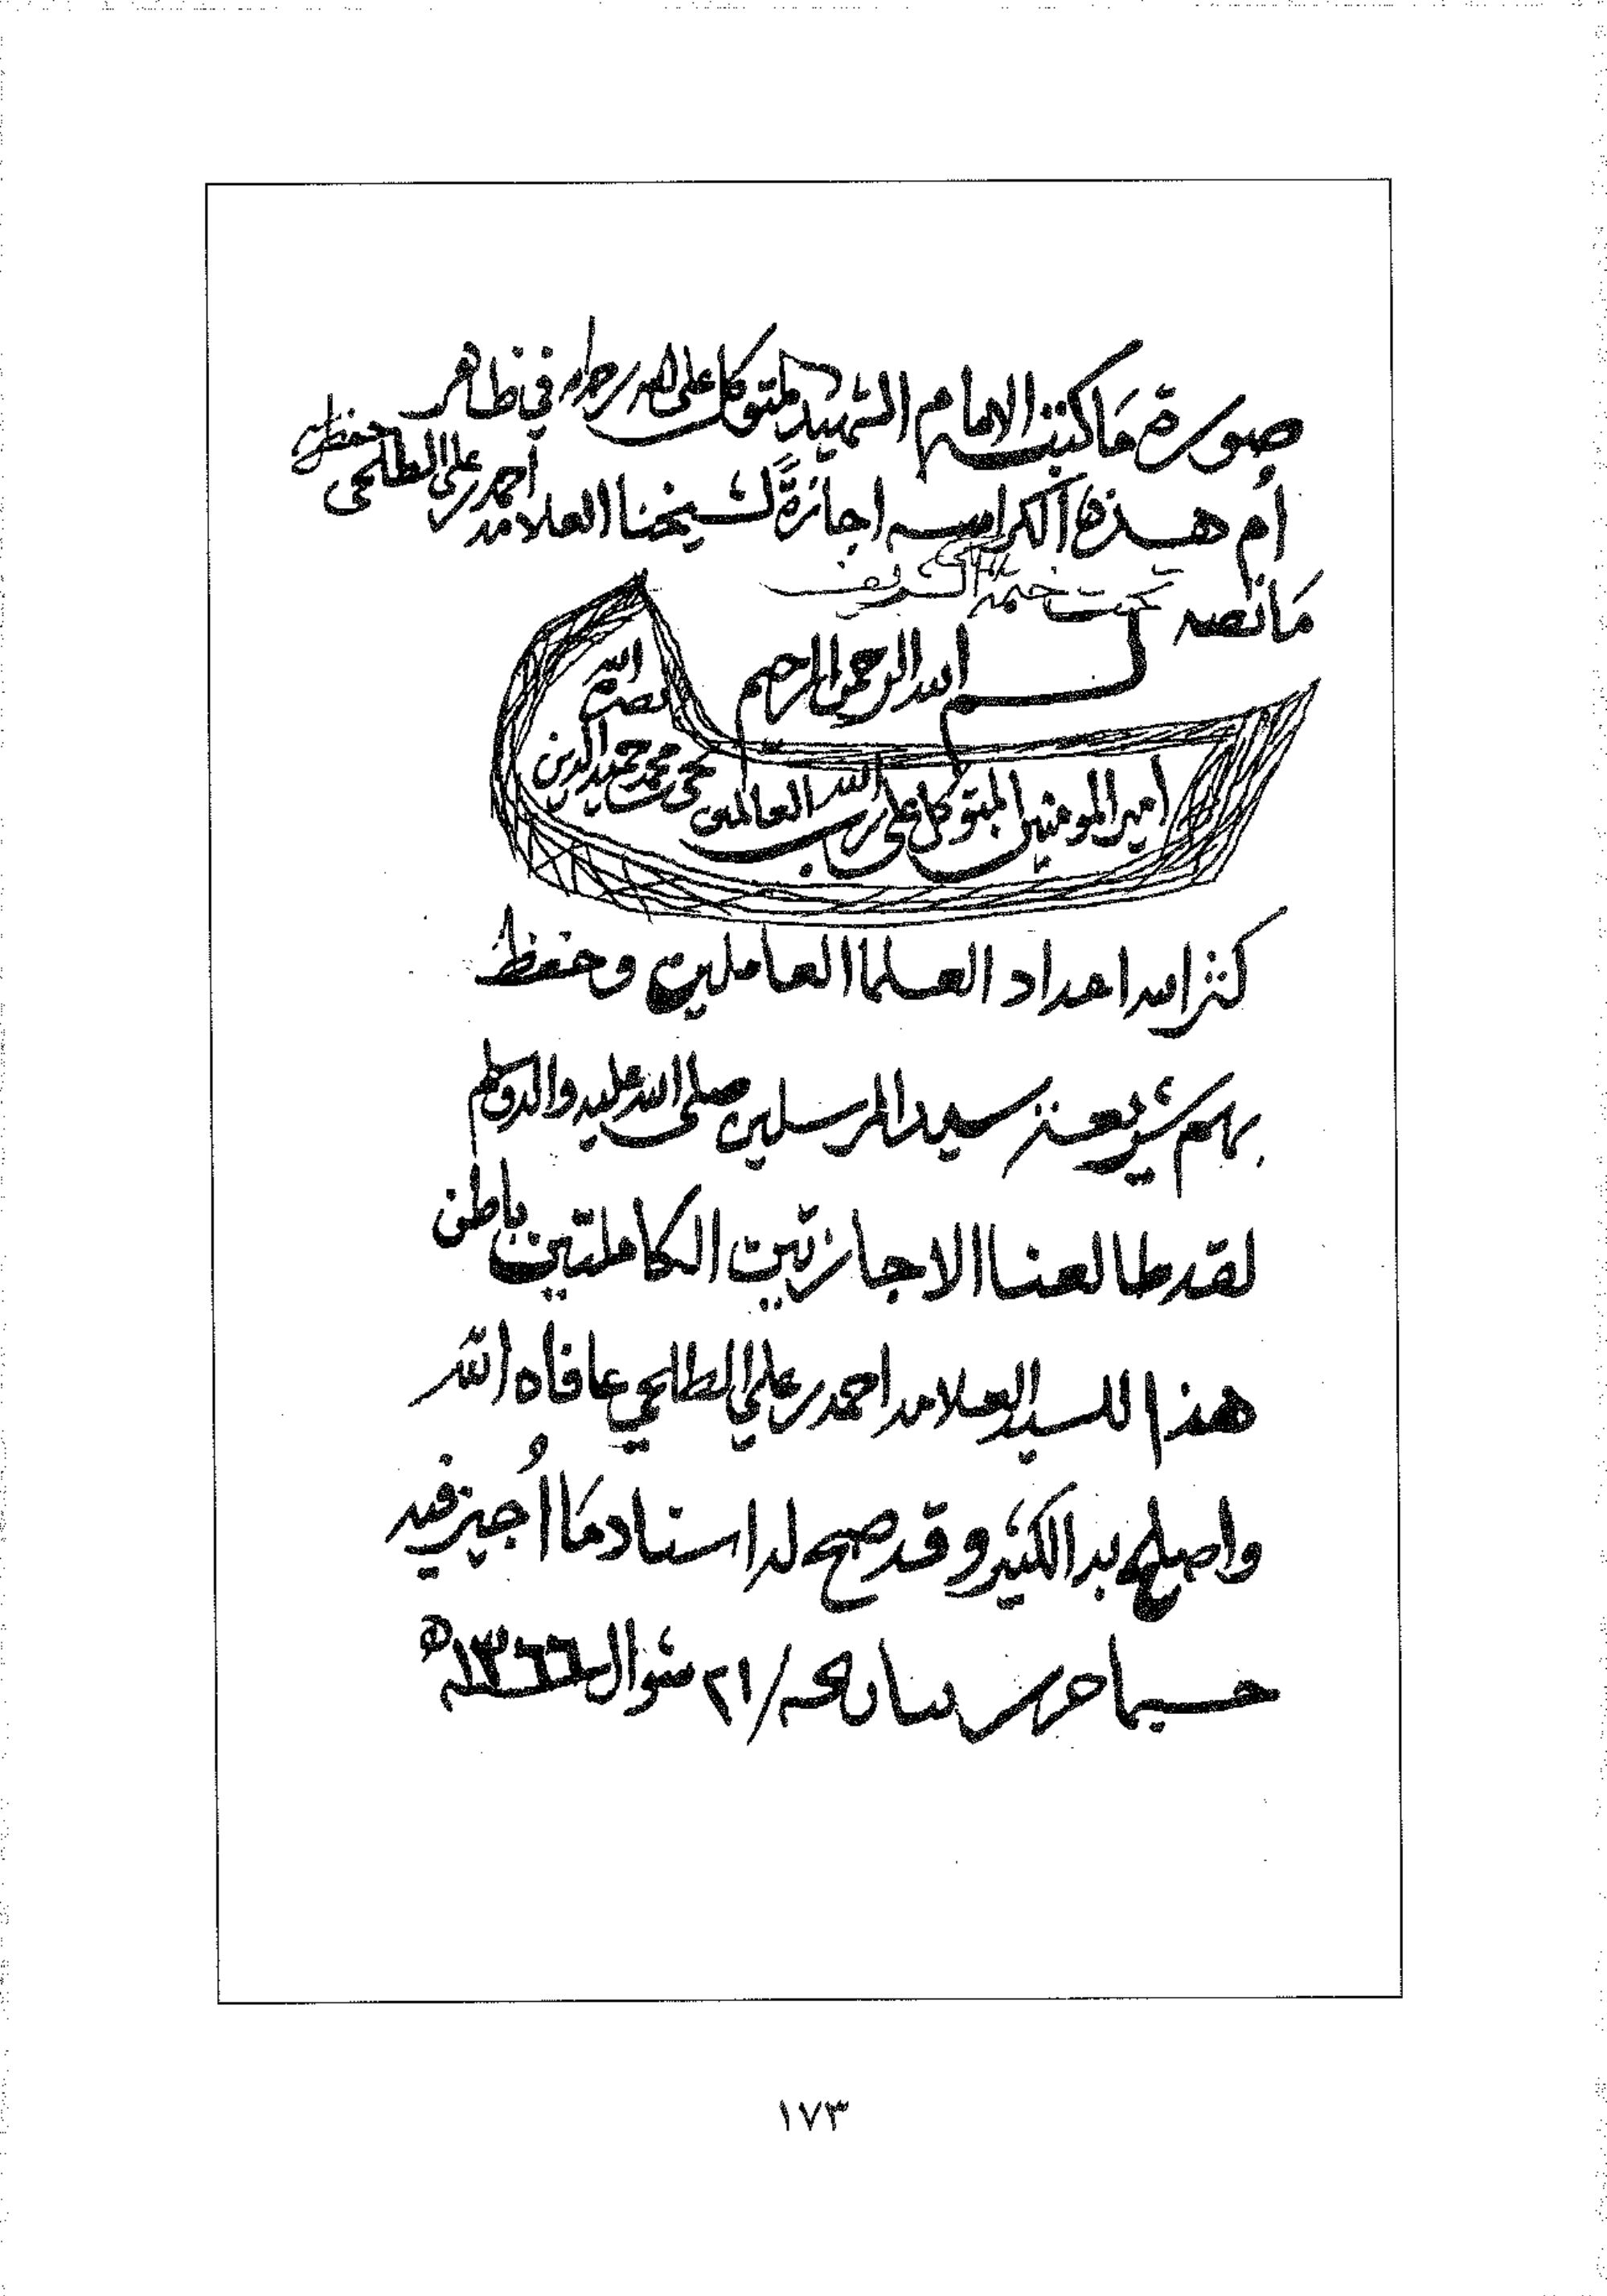 صورة مَا كتبه الامام الشهيد المتوكل على الله رحمه الله في ظاهر
أُم هذه الكراسه اجازةً لشيخنا العلامه احمد بن علي الطلحي حفظه
مَا نصه تحت ختمه الشريف
بسم الله الرحمن الرحيم
امير المومنين المتوكل على الله رب العالمين يحي بن محمد حميد الدين نصره الله
كثر الله اعداد العلما العاملين وحفظ
بهم شريعة سيد المرسلين صلى الله عليه واله وسلم
لقد طالعنا الاجازتين الكاملتين باطن
هذا للسيد العلامه احمد بن علي الطلحي عافاه الله
واصلح به الكثير وقد صح له اسناد مَا أُجيز فيه
حسبما حرر ٢١ شوال ١٣٦٦ه
١٧٣